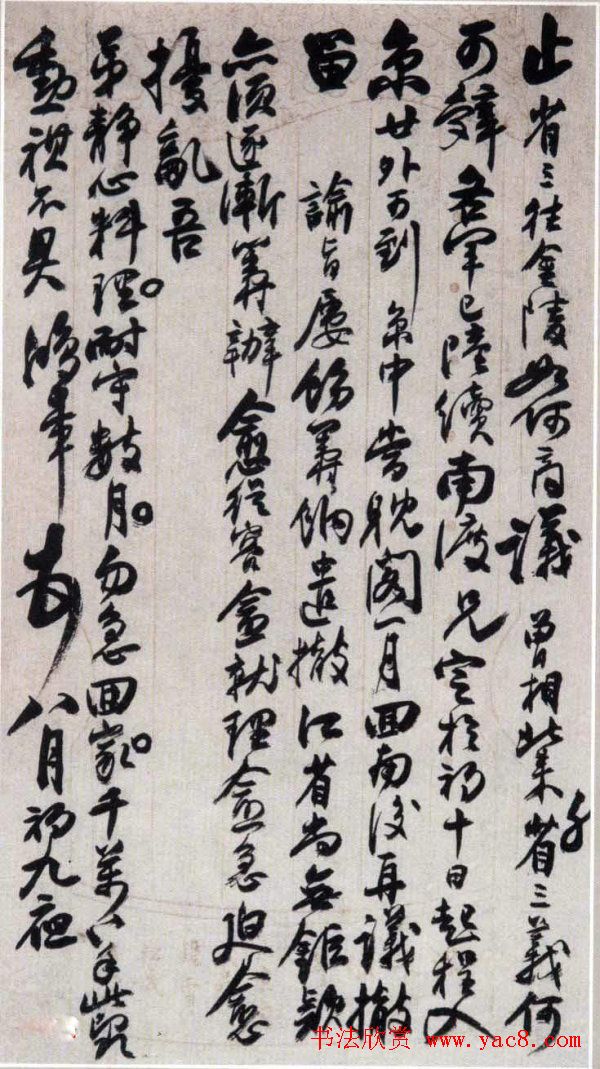 止 省三往金陵如何商議 曾相北來省三義何
可辭 各軍已陸續南渡 兄定於初十日起程入
京 廿外可到 京中當耽閣一月 回南後再議撤
留 諭旨屢飭籌餉遣撤 江省尚無鉅款
須逐漸籌辦 愈從容愈就理 愈急迫愈
擾亂 吾
弟靜心料理 耐守數月 勿急回家 千萬
勳祺不具 鴻章 八月初九夜
书法欣赏 www.yac8.com